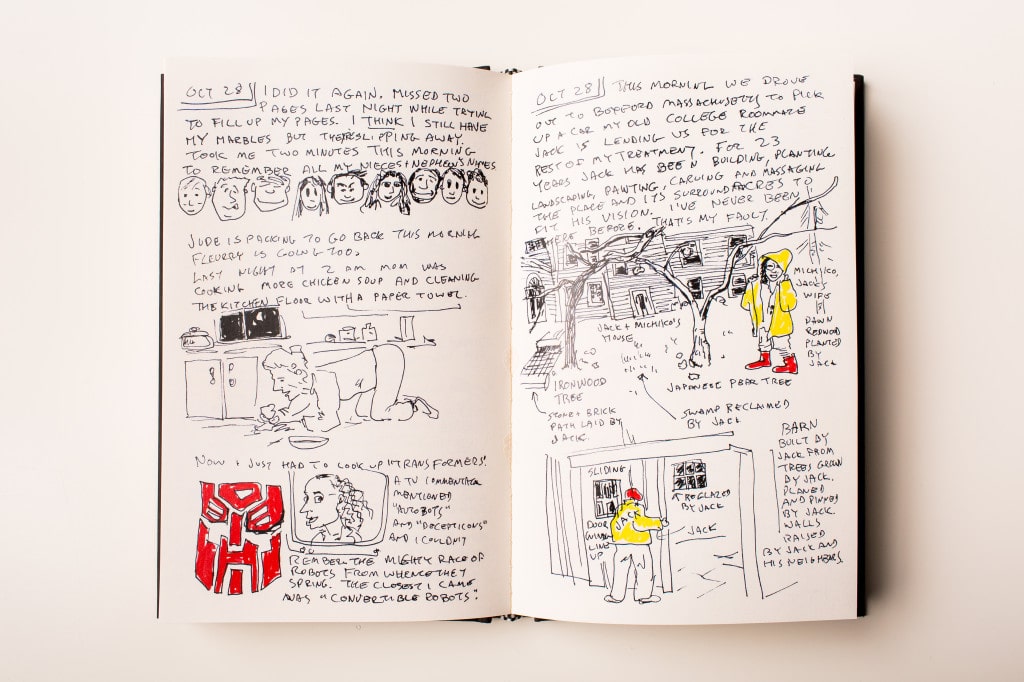 OCT 28 I DID IT AGAIN. MISSED TWO
PAGES LAST NIGHT WHILE TRYING
TO FILL UP MY PAGES. I THINK I STILL HAVE
MY MARBLES BUT THEY'RE SLIPPING AWAY.
TOOK ME TWO MINUTES THIS MORNING
TO REMEMBER ALL MY NIECES + NEPHEW'S NAMES
JUDE IS PACKING TO GO BACK THIS MORNING
FLEURRY IS GOING TOO.
LAST NIGHT AT 2 AM MOM WAS
COOKING MORE CHICKEN SOUP AND CLEANING
THE KITCHEN FLOOR WITH A PAPER TOWEL.
NOW I JUST HAD TO LOOK UP "TRANSFORMERS".
A TV COMMENTATOR
MENTIONED
"AUTOBOTS"
AND "DECEPTICONS"
AND I COULDN'T
REMEMBER THE MIGHTY RACE OF
ROBOTS FROM WHENCE THEY
SPRING. THE CLOSEST I CAME
WAS "CONVERTIBLE ROBOTS".
OCT 28 THIS MORNING WE DROVE
OUT TO MASSACHUSETTS TO PICK
UP A CAR MY OLD COLLEGE ROOMMATE
JACK IS LENDING US FOR THE
REST OF MY TREATMENT. FOR 23
YEARS JACK HAS BEEN BUILDING, PLANTING
LANDSCAPING, PAINTING, CARVING AND MASSAGING
THE PLACE AND ITS SURROUND ACRES TO
FIT HIS VISION. I'VE NEVER BEEN
HERE BEFORE. THAT'S MY FAULT.
MICHIKO,
JACK'S
WIFE
DAWN
REDWOOD
PLANTED
BY
JACK
JACK + MICHIKO'S
HOUSE
IRONWOOD
TREE
JAPANESE PEAR TREE
STONE + BRICK
PATH LAID BY
JACK.
SWAMP RECLAIMED
BY JACK
SLIDING
DOOR
LINE
UP
REGLAZED
BY JACK
JACK
JACK
BARN
BUILT BY
JACK FROM
TREES GROWN
BY JACK.
PLANED
AND PINNED
BY JACK.
WALLS
RAISED
BY JACK AND
HIS NEIGHBORS.